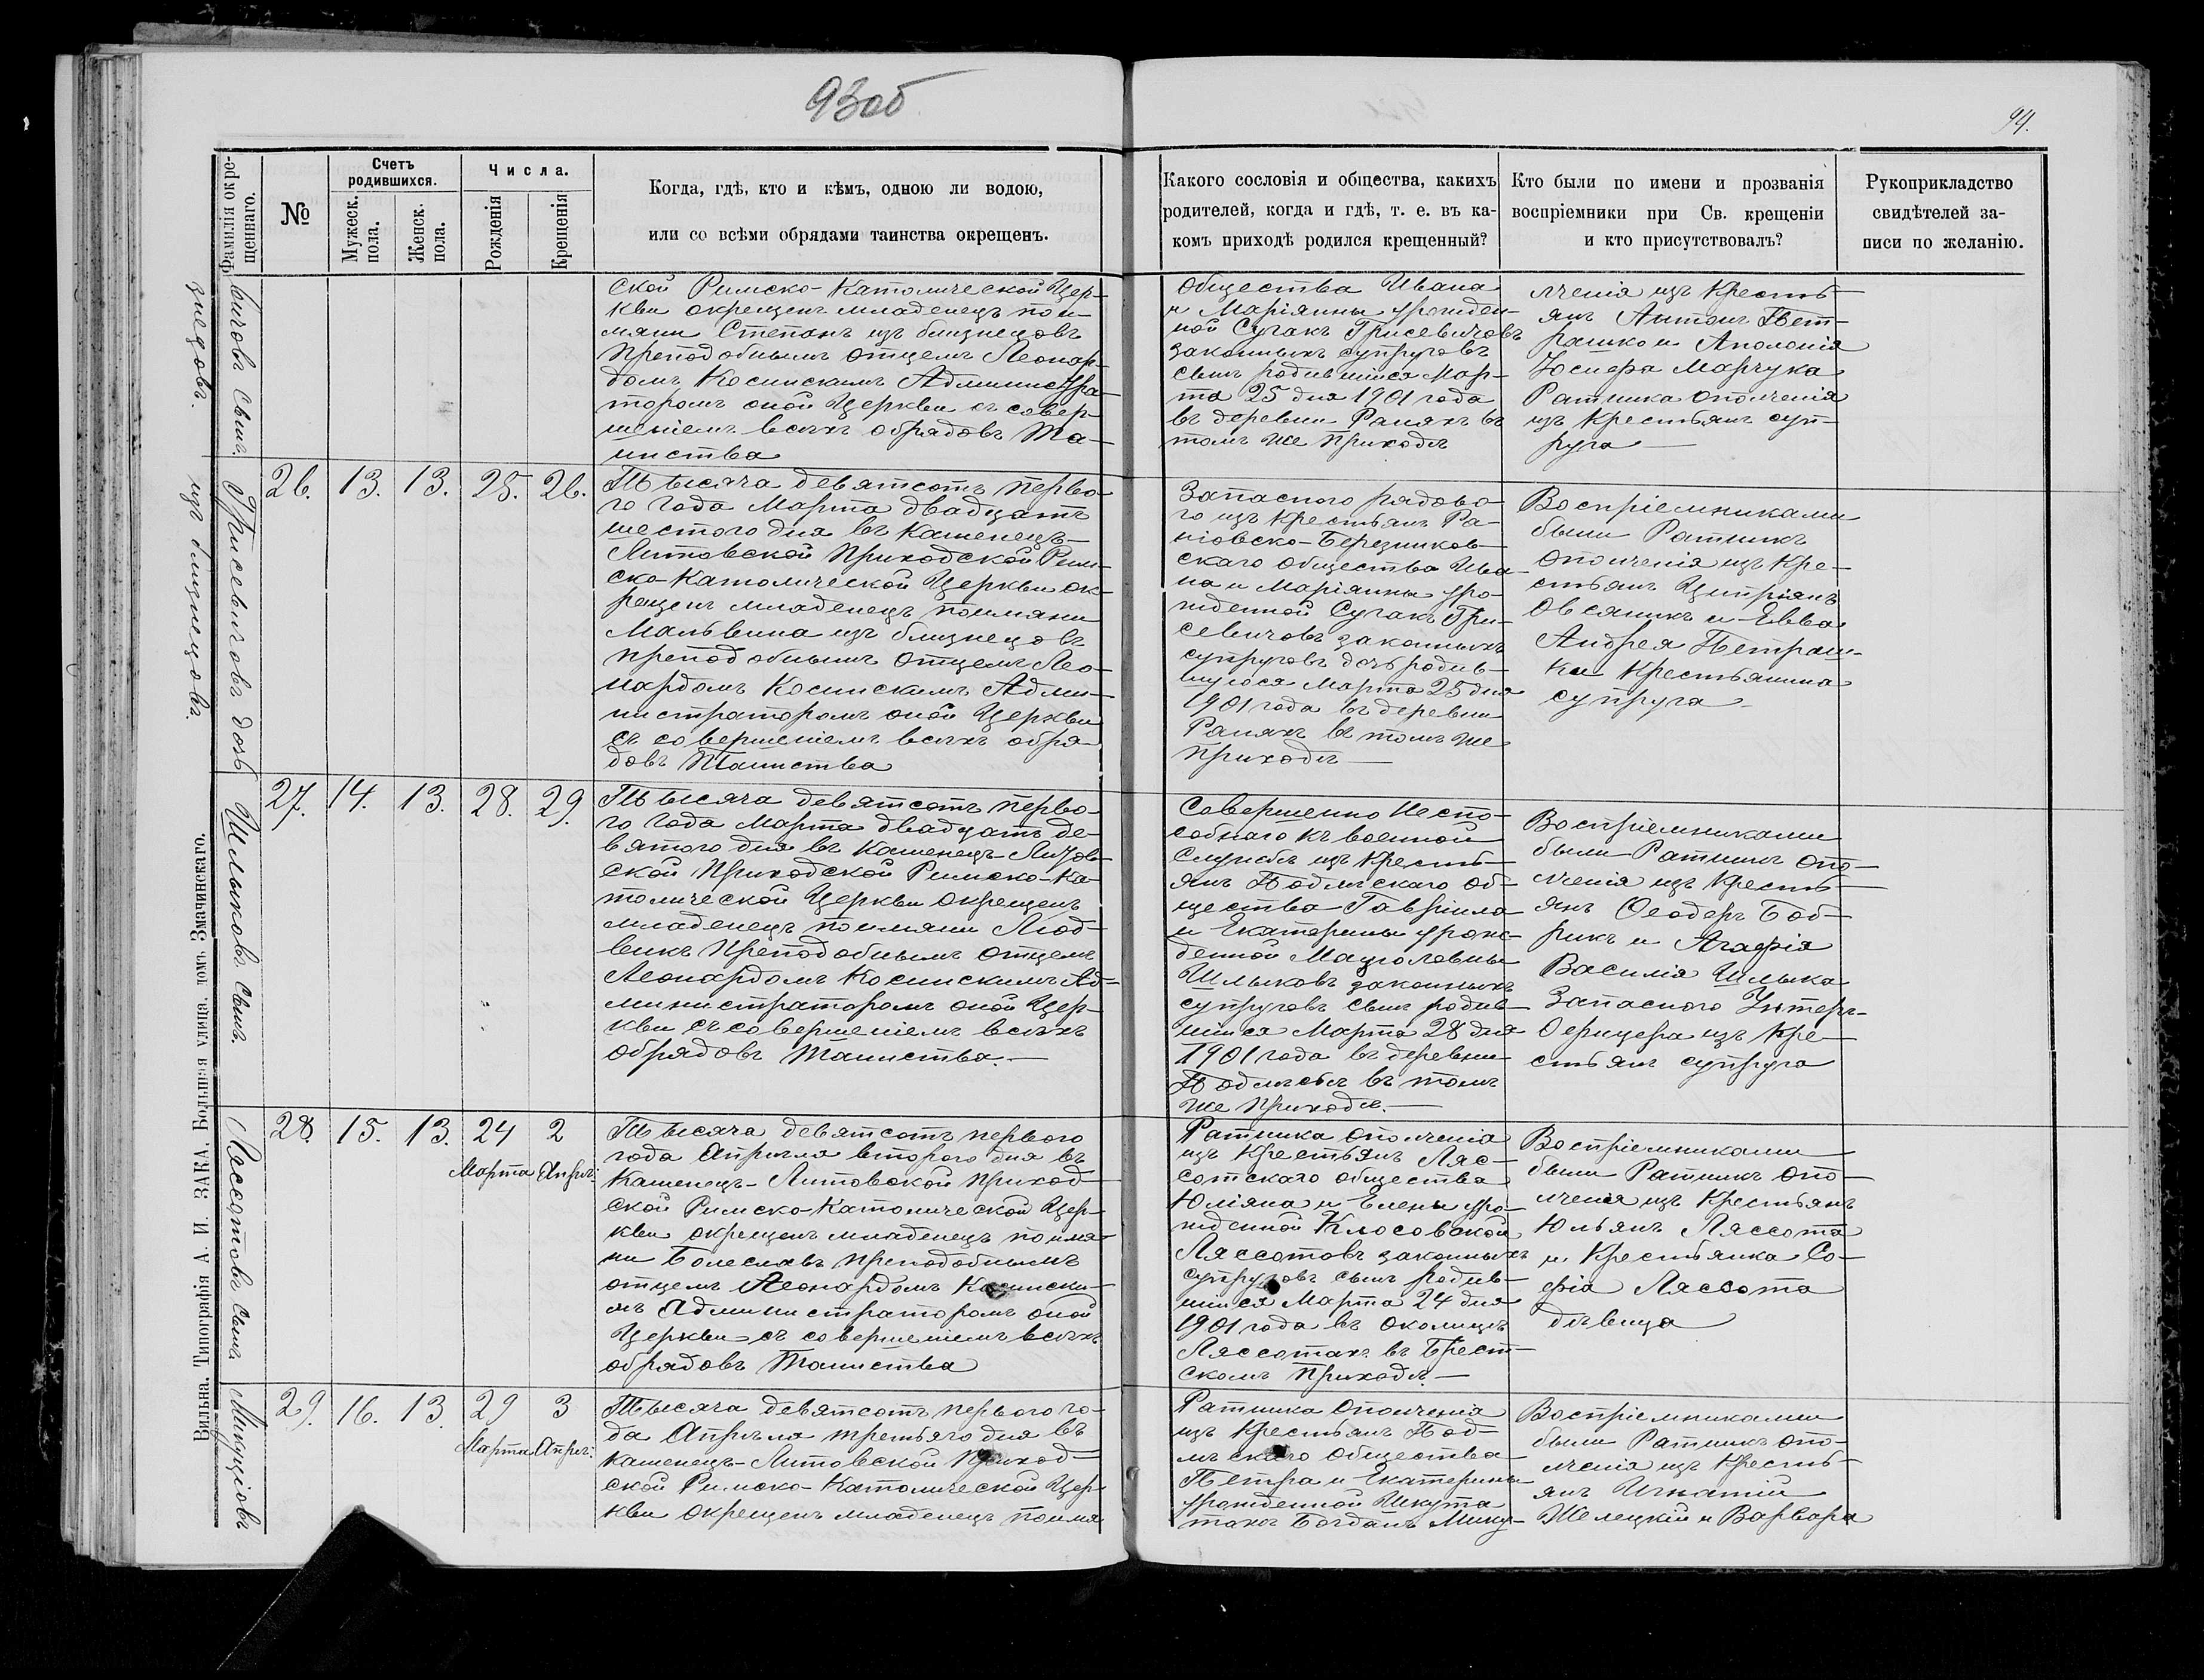 93об
94.
Фамилія окрещеннаго.
№
Счетъ родившихся.
Мужеск. пола.
Женск. пола.
Числа.
Рожденія
Крещенія
Когда, гдѣ, кто и кѣмъ, одною ли водою,
или со всѣми обрядами таинства окрещенъ.
Какого сословія и общества, какихъ
родителей, когда и гдѣ, т. е. въ ка-
комъ приходѣ родился крещенный?
Кто были по имени и прозванія
воспріемники при Св. крещеніи
и кто присутствовалъ?
Рукоприкладство
свидѣтелей за-
писи по желанію.
вичовъ сынъ.
знецовъ.
ской Римско-Католической Цер-
кви окрещенъ младенецъ по и-
мяни Степанъ изъ близнецовъ
преподобнымъ отцемъ Леонар-
домъ Косинскимъ Администра-
торомъ оной Церкви съ совер-
шеніемъ всѣхъ обрядовъ Та-
инства
Общества Ивана
и Маріянны урожден-
ной Сугакъ Грисевичовъ
законныхъ супруговъ
сынъ родившійся Мар-
та 25 дня 1901 года
въ деревни Раняхъ въ
томъ же приходѣ
лченія изъ Кресть-
янъ Антонъ Пет-
рашко и Аполонія
Юсифа Марчука
Ратника ополченія
изъ Крестьянъ суп-
руга
Грисевичовъ дочь
изъ близнецовъ.
26. 13. 13. 25. 26.
Тысяча девятсотъ перво-
го года Марта двадцать
шестого дня въ Каменецъ-
Литовской Приходской Рим-
ско-Католической Церкви ок-
рещенъ младенецъ по имяни
Мальвина изъ близнецовъ
преподобнымъ отцемъ Лео-
нардомъ Косинскимъ Адми-
нистраторомъ оной Церкви
съ совершеніемъ всѣхъ обря-
довъ Таинства
Запасного рядово-
го изъ Крестьянъ Ра-
ніовско-Березников-
скаго общества Ива-
на и Маріянны уро-
жденной Сугакъ Гри-
севичовъ законныхъ
супруговъ дочь родив-
шуюся Марта 25 дня
1901 года въ деревни
Раняхъ въ томъ же
приходѣ
Воспріемниками
были Ратникъ
ополченія изъ Кре-
стьянъ Ципріянъ
Овсяникъ и Евва
Андрея Петраш-
ки Крестьянина
супруга
Шлыковъ сынъ.
27. 14. 13. 28. 29.
Тысяча девятсотъ перво-
го года Марта двадцать де-
вятого дня въ Каменецъ-Литов-
ской Приходской Римско-Ка-
толической Церкви окрещенъ
младенецъ по имяни Люд-
викъ преподобнымъ отцемъ
Леонардомъ Косинскимъ Ад-
министраторомъ оной Цер-
кви съ совершеніемъ всѣхъ
обрядовъ Таинства.
Совершенно неспо-
собнаго къ военной
службѣ изъ Кресть-
янъ Подлѣскаго об-
щества Гавріила
и Екатерины урож-
денной
Шлыковъ законныхъ
супруговъ сынъ родив-
шійся Марта 28 дня
1901 года въ деревни
Подлѣсьѣ въ томъ
же приходѣ.
Воспріемниками
были Ратникъ опо-
лченія изъ Кресть-
янъ Ѳеодоръ Боб-
рикъ и Агафія
Василія Шлыка
Запасного Унтеръ-
Офицера изъ Кре-
стьянъ супруга
Лессотовъ сынъ
28. 15. 13. 24 2
Марта Апрѣ:
Тысяча девятсотъ первого
года Апрѣля второго дня въ
Каменецъ-Литовской Приход-
ской Римско-Католической Цер-
кви окрещенъ младенецъ по имя-
ни Болеславъ преподобнымъ
отцемъ Леонардомъ Косински-
мъ Администраторомъ оной
Церкви съ совершеніемъ всѣхъ
обрядовъ Таинства
Ратника ополченія
изъ Крестьянъ Ляс-
сотскаго общества
Юліяна и Елены уро-
жденной Клосовской
Ляссотовъ законныхъ
супруговъ сынъ родив-
шійся Марта 24 дня
1901 года въ околицѣ
Ляссотахъ въ Брест-
скомъ приходѣ.
Воспріемниками
были Ратникъ опо-
лченія изъ Крестьянъ
Юльянъ Ляссота
и Крестьянка Со-
фія Ляссота
дѣвица
Микуціовъ
29. 16. 13. 29 3
Марта Апрѣ:
Тысяча девятсотъ первого го-
да Апрѣля третьяго дня въ
Каменецъ-Литовской Приход-
ской Римско-Католической Цер-
кви окрещенъ младенецъ по имя
Ратника ополченія
изъ Крестьянъ Под-
лѣскаго общества
Петра и Екатерины
урожденной Шкута
тожъ Богданъ Мику-
Воспріемниками
были Ратникъ опо-
лченія изъ Кресть-
янъ Игнатій
Желецкій и Варвара
Вильна. Типографія А. И. ЗАКА, Большая улица, домъ Змачинскаго.